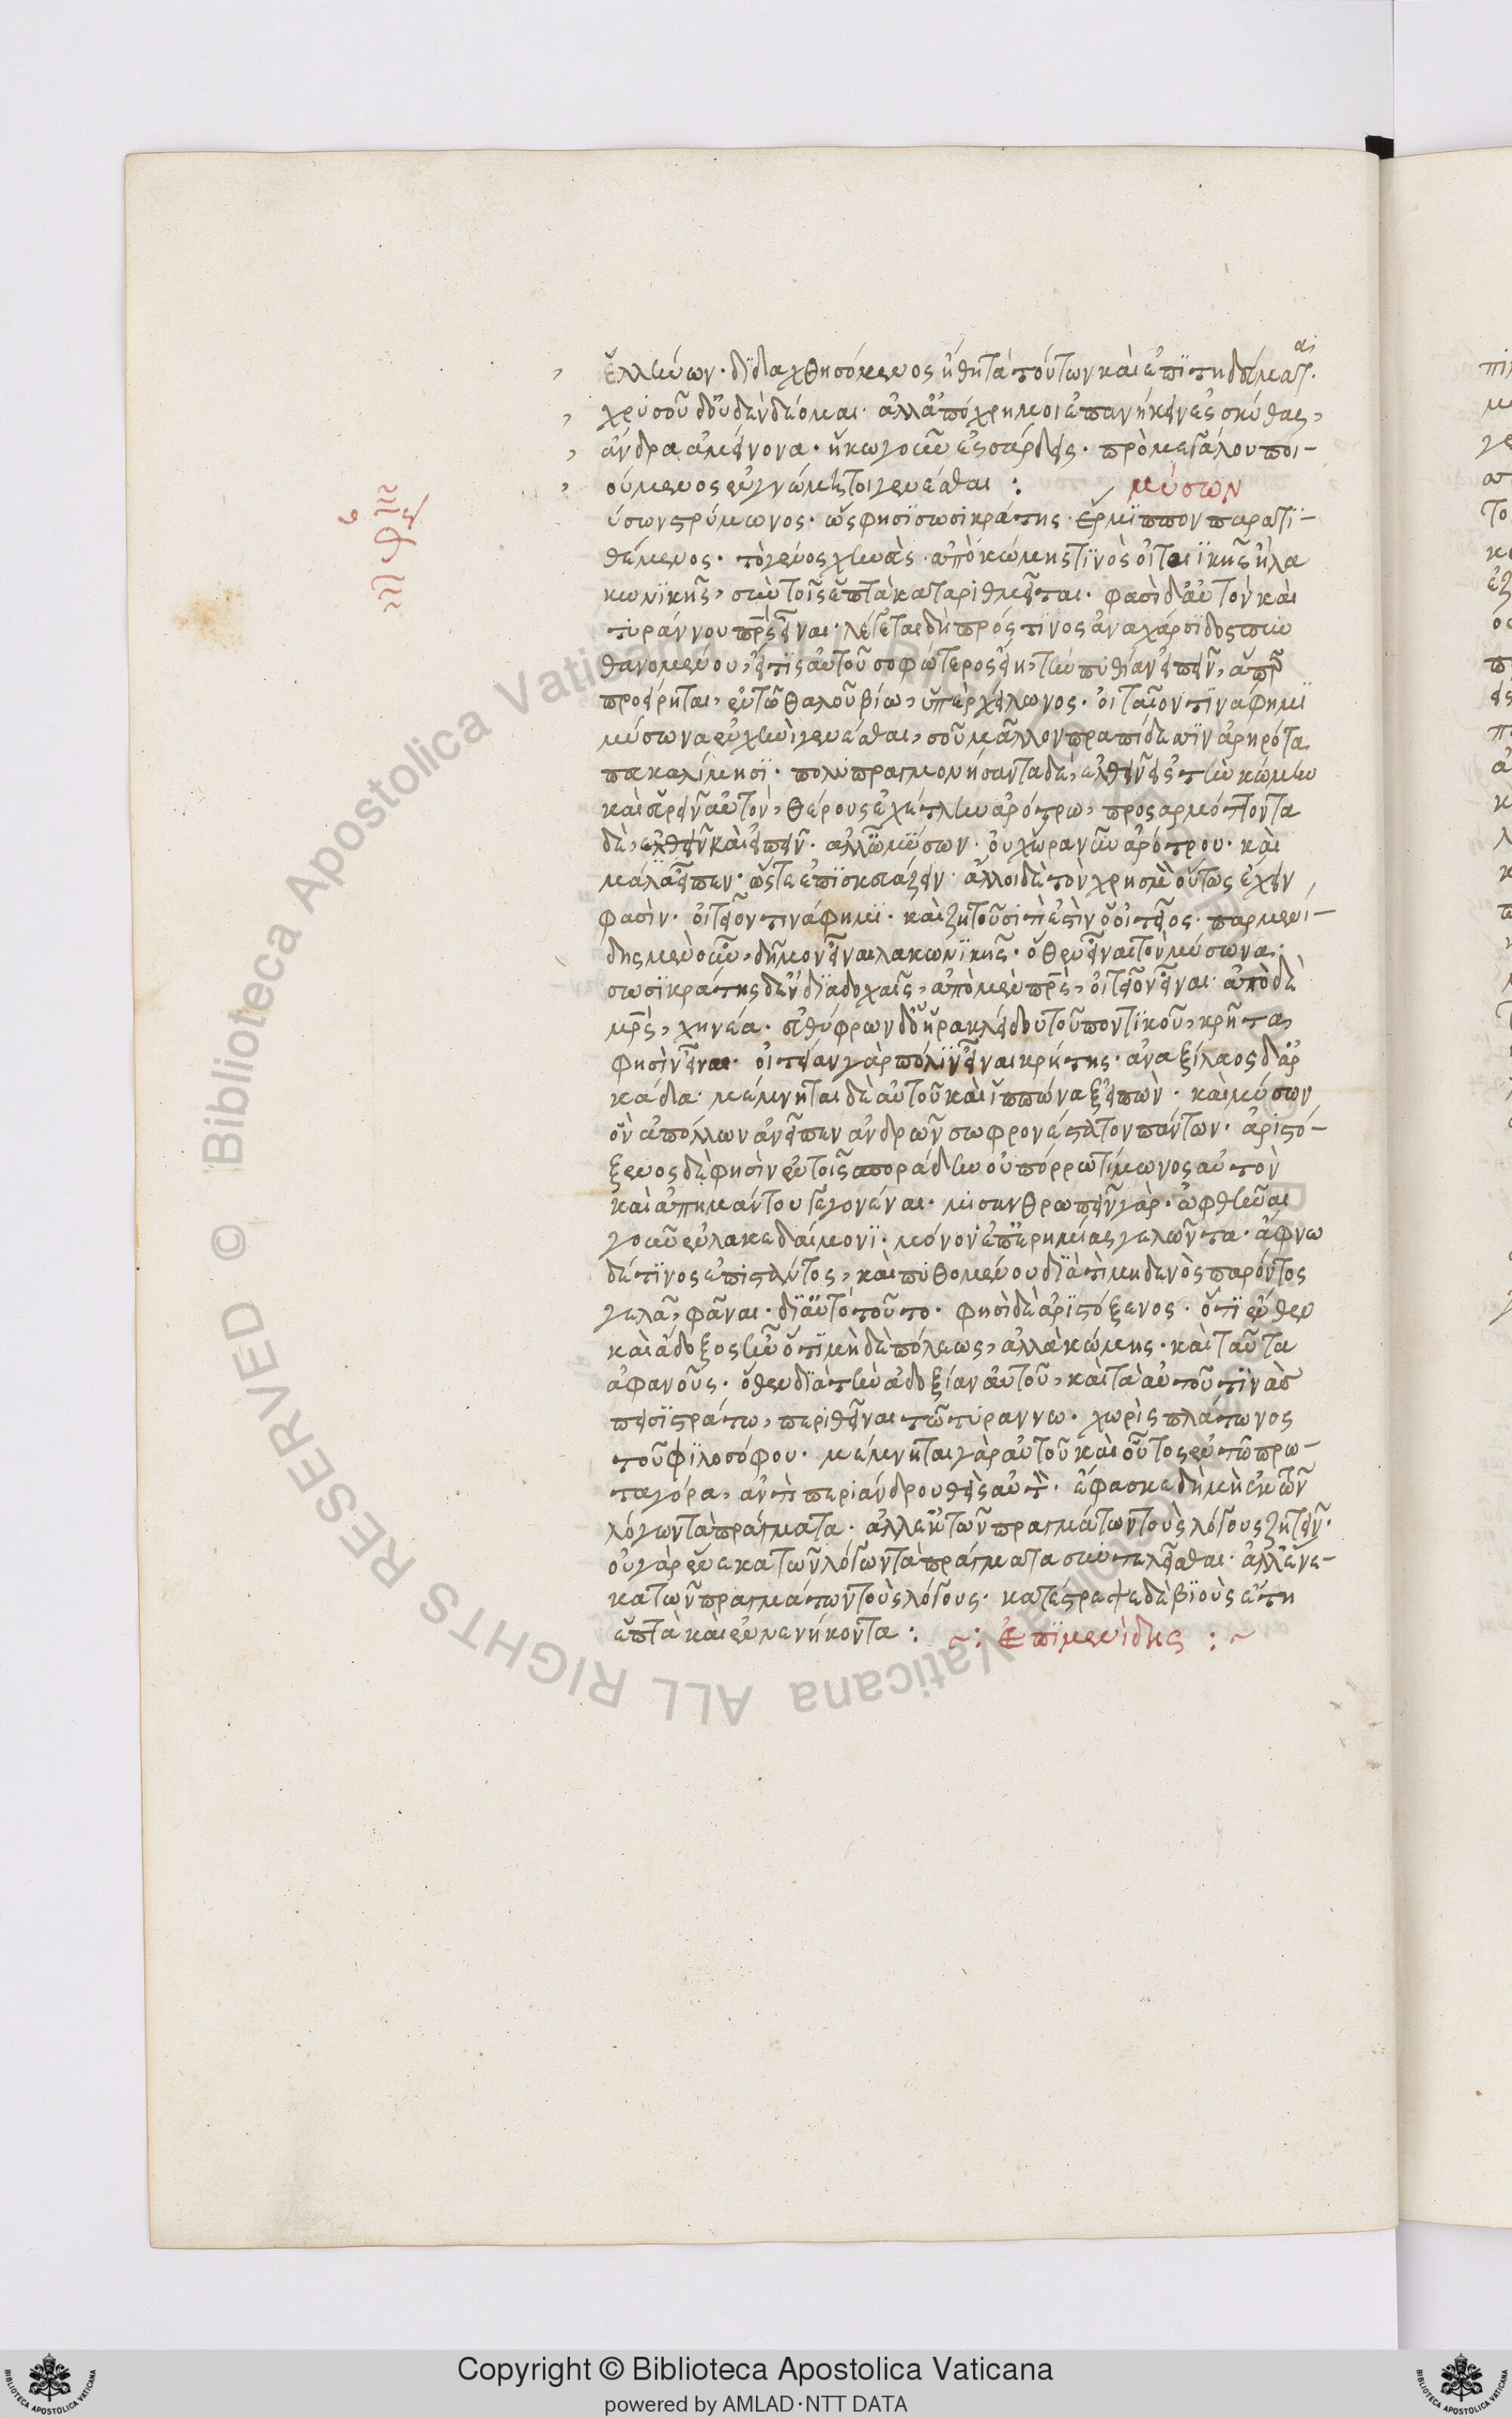 ἑλλήνων. διδαχθησόμενος ἤθη τὰ τούτων καὶ ἐπιτηδεύματα.
χρυσοῦ δ' οὐδὲν δέομαι. ἀλλ' ἀπόχρη μοι ἐπανήκειν ἐς σκύθας,
ἄνδρα ἀμείνονα. ἥκω γοῦν ἐς σάρδεις. πρὸ μεγάλου ποι-
ούμενος ἐν γνώμη τοι γενέσθαι :
μύσων
ύσων στρύμωνος. ὥς φησι σωσικράτης ἕρμιππον παρατι-
θέμενος. τὸ γένος χηνὰς. ἀπὸ κώμης τινὸς οἰταϊκῆς ἢ λα
κωνικῆς, σὺν τοῖς ἑπτὰ καταριθμεῖται. φασὶ δ' αὐτὸν καὶ
τυράννου πρς εἶναι. λέγεται δὴ πρός τινος ἀναχάρσιδος πυν
θανομένου, εἴ τις αὐτοῦ σοφώτερος εἴη, τὴν πυθίαν εἰπεῖν, ἅπερ
προείρηται, ἐν τῷ θαλοῦ βίω, ὑπὲρ χείλωνος. οἰταῖον τινά φημι
μύσωνα ἐν χηνὶ γενέσθαι, σοῦ μᾶλλον πραπίδεσσιν ἀρηρότα
πευκαλίμησι. πολυπραγμονήσαντα δὲ, ἐλθεῖν εἰς τὴν κώμην
καὶ εὑρεῖν αὐτὸν, θέρους ἐχέτλην ἀρότρω, προσαρμόττοντα
δὲ, ἐλθεῖν καὶ εἰπεῖν. ἀλλ' ὦ μύσων. οὐχ ὥρα νῦν ἀρότρου. καὶ
μάλα εἶπεν. ὥστε ἐπισκευάζειν. ἄλλοι δὲ τὸν χρησμὸν οὕτως ἔχειν
φασὶν. οἰτεῖον τινά φημι. καὶ ζητοῦσι τί ἐστὶν ὁ οἰτεῖος. παρμενί-
δης μὲν οὖν, δῆμον εἶναι λακωνικῆς. ὅθεν εἶναι τὸν μύσωνα.
σωσικράτης δ' ἐν διαδοχαῖς, ἀπὸ μὲν πρς, οἰτεῖον εἶναι. ἀπὸ δὲ
μρς, χηνέα. εὐθύφρων δ' ὁ ἡρακλείδου τοῦ ποντικοῦ, κρῆτα,
φησὶν εἶναι. οἰτείαν γὰρ πόλιν εἶναι κρήτης. ἀναξίλαος δ' ἀρ
κάδα. μέμνηται δὲ αὐτοῦ καὶ ἱππώναξ εἰπὼν. καὶ μύσων
ὃν ἀπόλλων ἀνεῖπεν ἀνδρῶν σωφρονέστατον πάντων. ἀριστό-
ξενος δὲ φησὶν ἐν τοῖς σποράδην οὐ πόρρω τίμωνος αὐτὸν
καὶ ἀπημάντου γεγονέναι. μισανθρωπεῖν γὰρ. ὀφθῆναι
γοῦν ἐν λακεδαίμονι. μόνον ἐπ' ἐρημίας γελῶντα. ἄφνω
δέ τινος ἐπιστάντος, καὶ πυθομένου διὰ τί μηδενὸς παρόντος
γελᾶ, φᾶναι. δι' αὐτὸ τοῦτο. φησὶ δὲ ἀριστόξενος. ὅτι ἔνθεν
καὶ ἄδοξος ἦν ὅτι μηδὲ πόλεως, ἀλλὰ κώμης. καὶ ταῦτα
ἀφανοῦς. ὅθεν διὰ τὴν ἀδοξίαν αὐτοῦ, καὶ τὰ αὐτοῦ τινὰς
πεισιστράτω, περιθεῖναι τῷ τυράννω. χωρὶς πλάτωνος
τοῦ φιλοσόφου. μέμνηται γὰρ αὐτοῦ καὶ οὗτος ἐν τῷ πρω-
ταγόρα, ἀντὶ περιάνδρου θεὶς αὐτὸν. ἔφασκε δὴ μὴ ἐκ τῶν
λόγων τὰ πράγματα. ἀλλ' ἐκ τῶν πραγμάτων τοὺς λόγους ζητεῖν.
οὐ γὰρ ἕνεκα τῶν λόγων τὰ πράγματα συντελεῖσθαι. ἀλλ' ἕνε-
κα τῶν πραγμάτων τοὺς λόγους. κατέστρεψε δὲ βιοὺς ἔτη
ἑπτὰ καὶ ἐνενήκοντα :
~ : Ἐπιμενίδης : ~
Copyright © Biblioteca Apostolica Vaticana
powered by AMLAD·NTT DATA